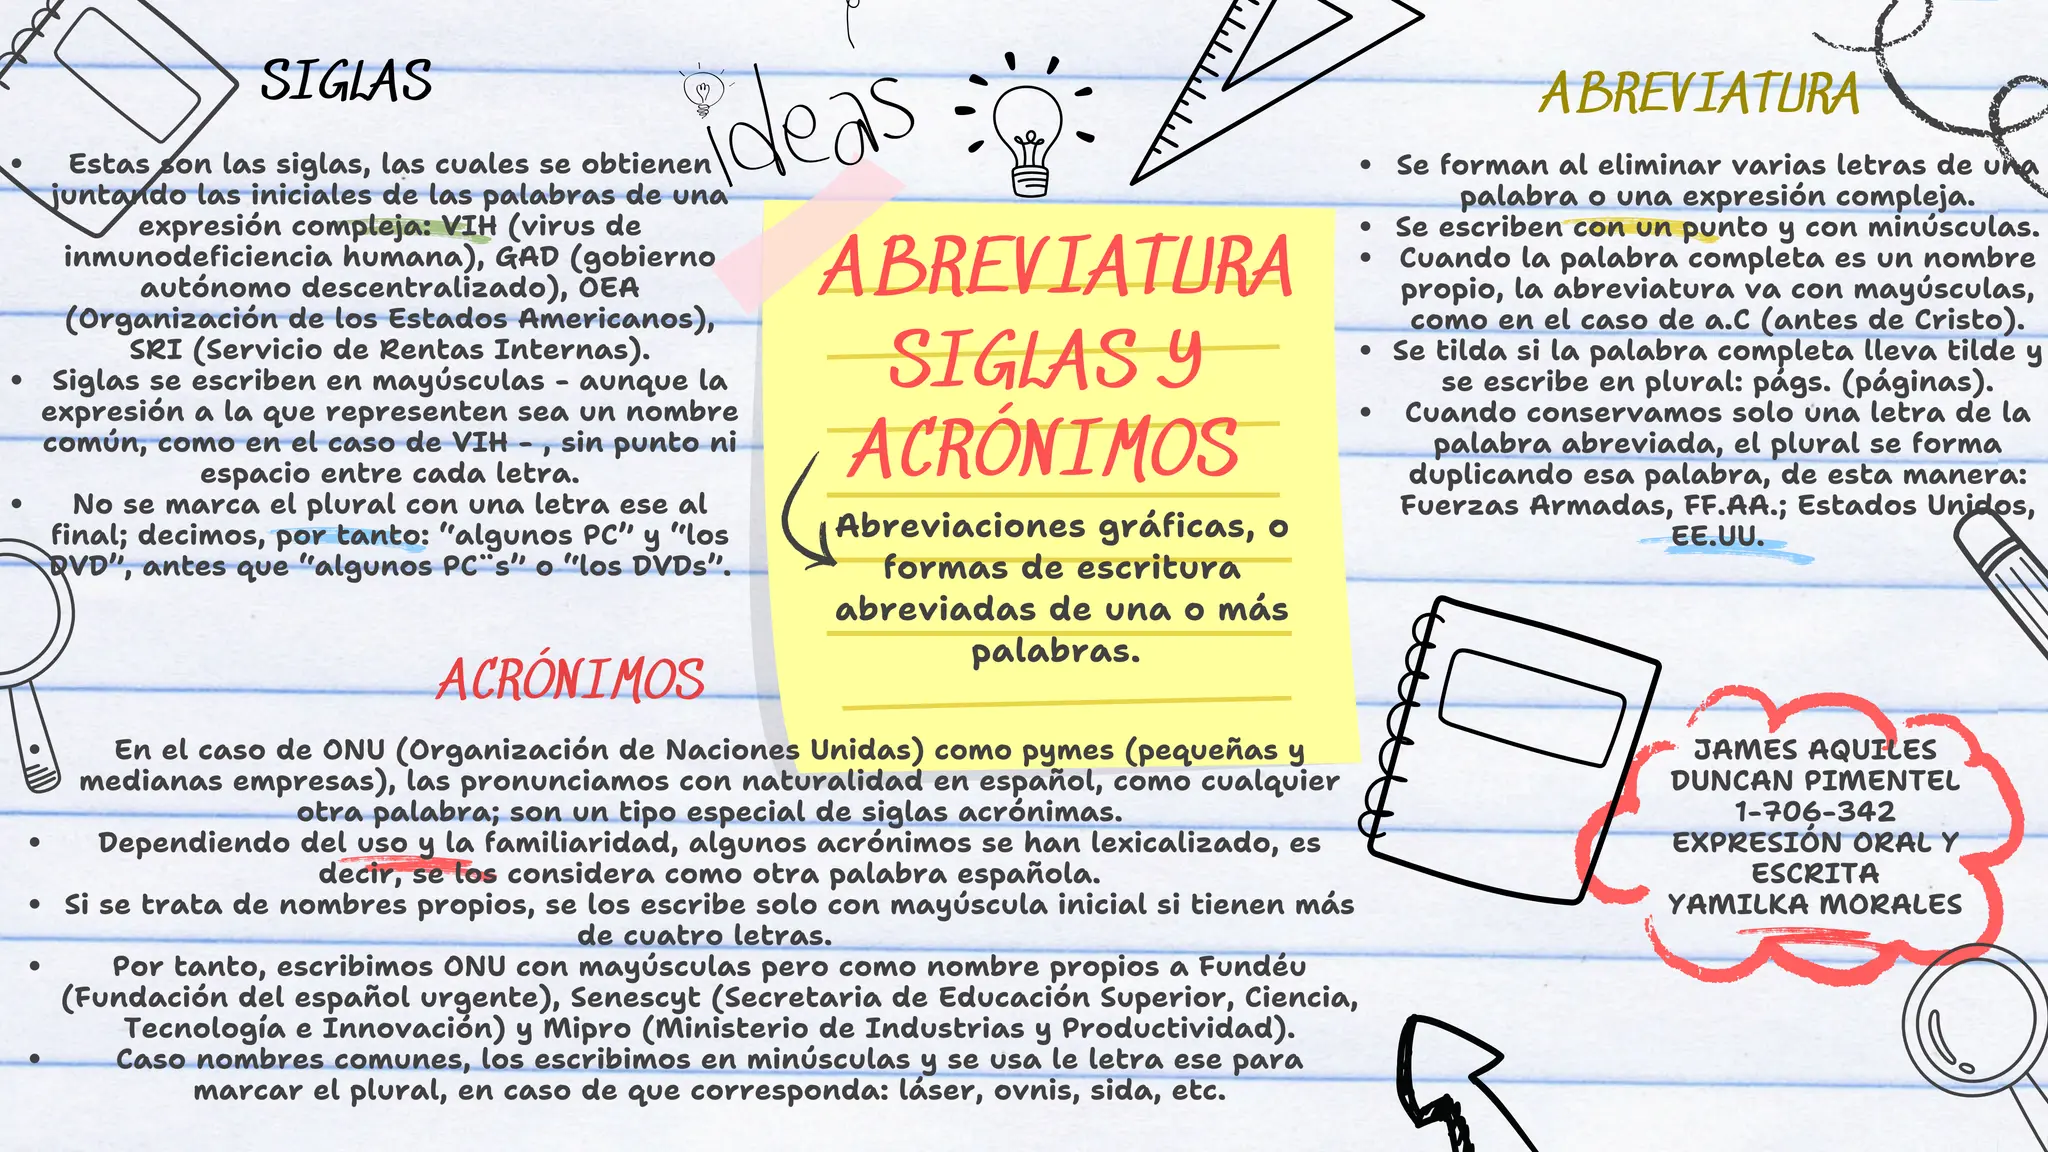 SIGLAS
Estas son las siglas, las cuales se obtienen
juntando las iniciales de las palabras de una
expresión compleja: VIH (virus de
inmunodeficiencia humana), GAD (gobierno
autónomo descentralizado), OEA
(Organización de los Estados Americanos),
SRI (Servicio de Rentas Internas).
Siglas se escriben en mayúsculas - aunque la
expresión a la que representen sea un nombre
común, como en el caso de VIH - , sin punto ni
espacio entre cada letra.
No se marca el plural con una letra ese al
final; decimos, por tanto: “algunos PC” y “los
DVD”, antes que “algunos PC¨s” o “los DVDs”.
ideas
ABREVIATURA
SIGLAS Y
ACRÓNIMOS
Abreviaciones gráficas, o
formas de escritura
abreviadas de una o más
palabras.
ABREVIATURA
Se forman al eliminar varias letras de una
palabra o una expresión compleja.
Se escriben con un punto y con minúsculas.
Cuando la palabra completa es un nombre
propio, la abreviatura va con mayúsculas,
como en el caso de a.C (antes de Cristo).
Se tilda si la palabra completa lleva tilde y
se escribe en plural: págs. (páginas).
Cuando conservamos solo una letra de la
palabra abreviada, el plural se forma
duplicando esa palabra, de esta manera:
Fuerzas Armadas, FF.AA.; Estados Unidos,
EE.UU.
ACRÓNIMOS
En el caso de ONU (Organización de Naciones Unidas) como pymes (pequeñas y
medianas empresas), las pronunciamos con naturalidad en español, como cualquier
otra palabra; son un tipo especial de siglas acrónimas.
Dependiendo del uso y la familiaridad, algunos acrónimos se han lexicalizado, es
decir, se los considera como otra palabra española.
Si se trata de nombres propios, se los escribe solo con mayúscula inicial si tienen más
de cuatro letras.
Por tanto, escribimos ONU con mayúsculas pero como nombre propios a Fundéu
(Fundación del español urgente), Senescyt (Secretaria de Educación Superior, Ciencia,
Tecnología e Innovación) y Mipro (Ministerio de Industrias y Productividad).
Caso nombres comunes, los escribimos en minúsculas y se usa le letra ese para
marcar el plural, en caso de que corresponda: láser, ovnis, sida, etc.
JAMES AQUILES
DUNCAN PIMENTEL
1-706-342
EXPRESIÓN ORAL Y
ESCRITA
YAMILKA MORALES